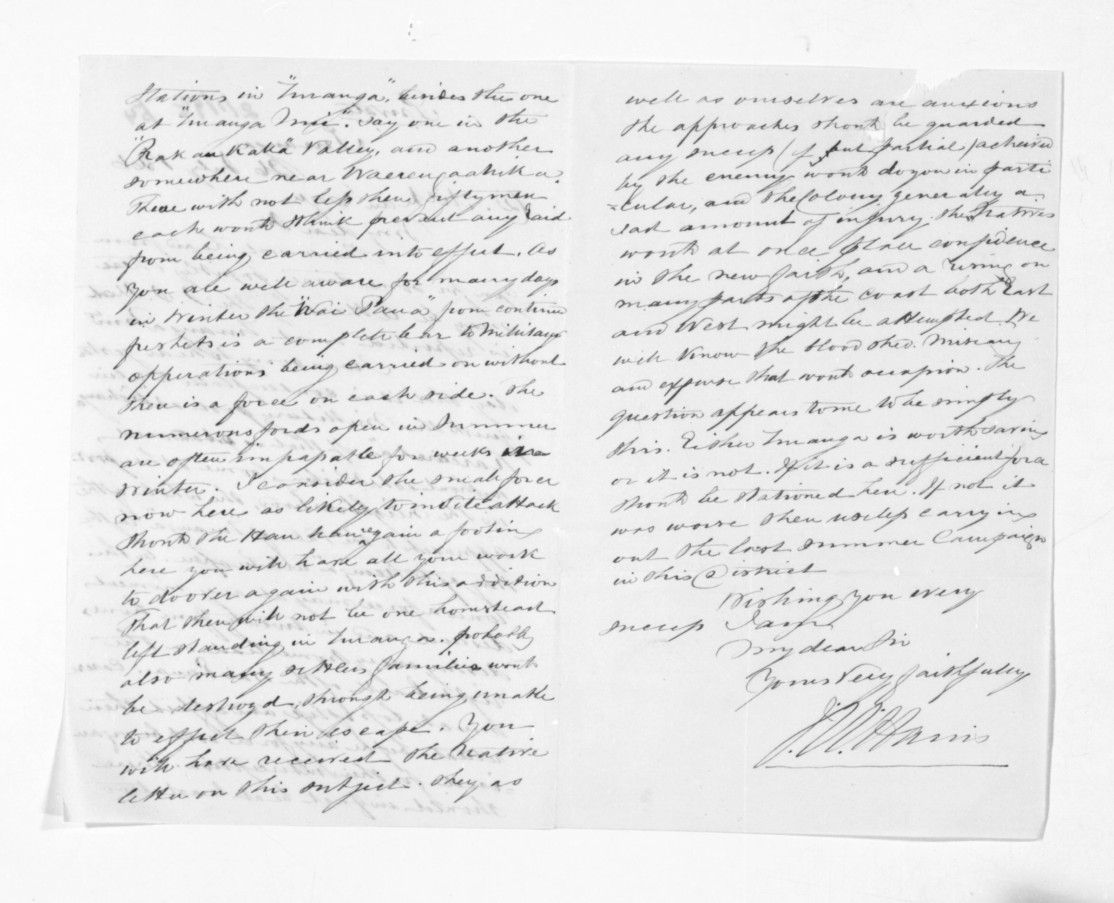 Stations in "Turanga", besides the one
at "Turanga Nui". Say one in the
"Rakau Kaka" Valley, and another
somewhere near Waerengaahika.
These with not less then fifty men
each would I think prevent any raid
from being carried into effect. As
you are well aware for many days
in Winter the "Wai Paua" from continue
freshets is a complete bar to Military
opperations being carried on without
there is a force on each side. The
numerous fords open in Summer
are often impassable for weeks in
Winter. I consider the small force
now here as likely to invite attack
should the Hau haus gain a footing
here you will have all your work
to do over again with this addition
that there will not be one homstead
left standing in Turanga. probably
also many settlers families would
be destroyd through being unable
to effect their escape. You
will have received the Native
letter on this subject. They as
well as ourselves are anxious
the approaches should be guarded
any success (if but partial) acheived
by the enemy would do you in parti
cular, and the Colony generally a
sad amount of injury. the Natives
would at once place confidence
in the new faith, and a rising on
many parts of the coast both East
and West might be attempted. We
well know the blood shed. Misery
and expense that would occasion. The
question appears to me to be simply
this. Either Turanga is worth saving
or it is not. If it is a sufficient force
should be stationed here. If not it
was worse then useless carrying
out the last summer Campaign
in this District
Wishing you every
success I am
My dear Sir
Yours Very faithfully
J. W. Harris